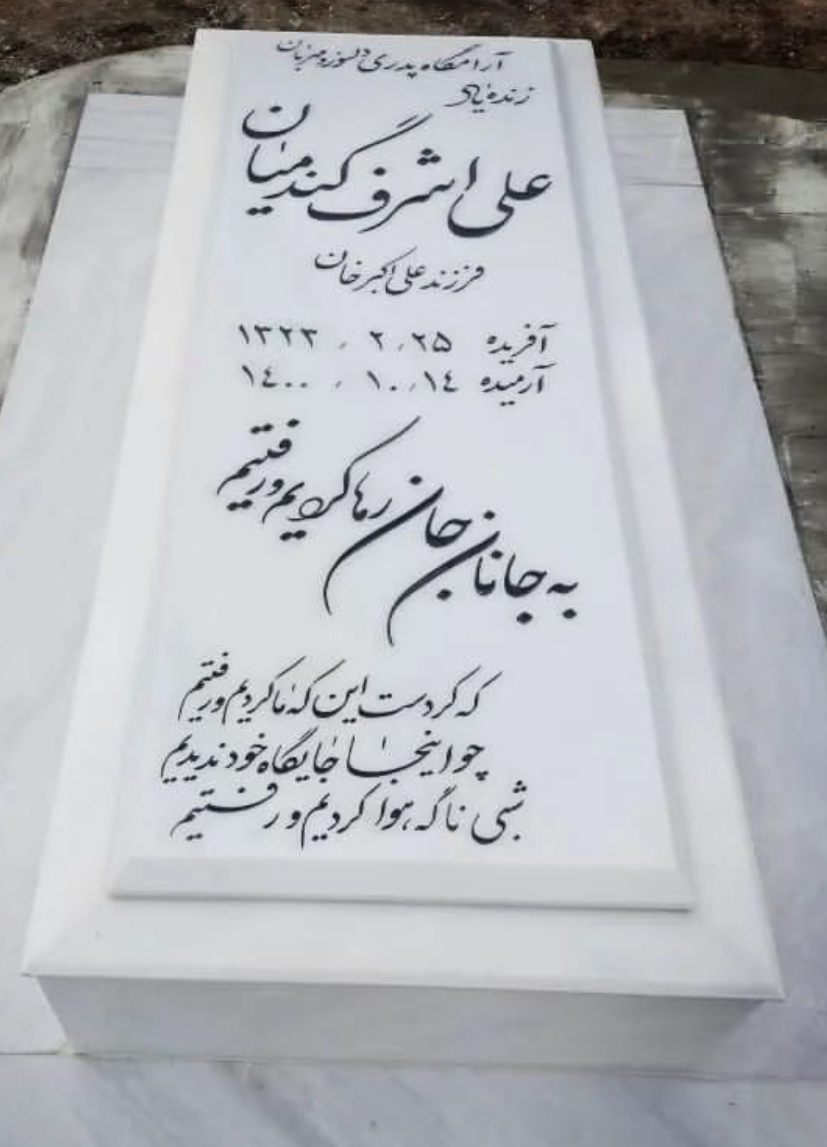 آرامگاه پدری دلسوز و مهربان
زنده یاد
علی اشرف گندمیان
فرزند علی اکبر خان
آفریده ۲۵ / ۲ / ۱۳۲۳
آرمیده ۱۴ / ۱۰ / ۱۴۰۰
به جانان جان رها کردیم و رفتیم
که کردست این که ما کردیم و رفتیم
چو اینجا جایگاه خود ندیدیم
شبی ناگه هوا کردیم و رفتیم